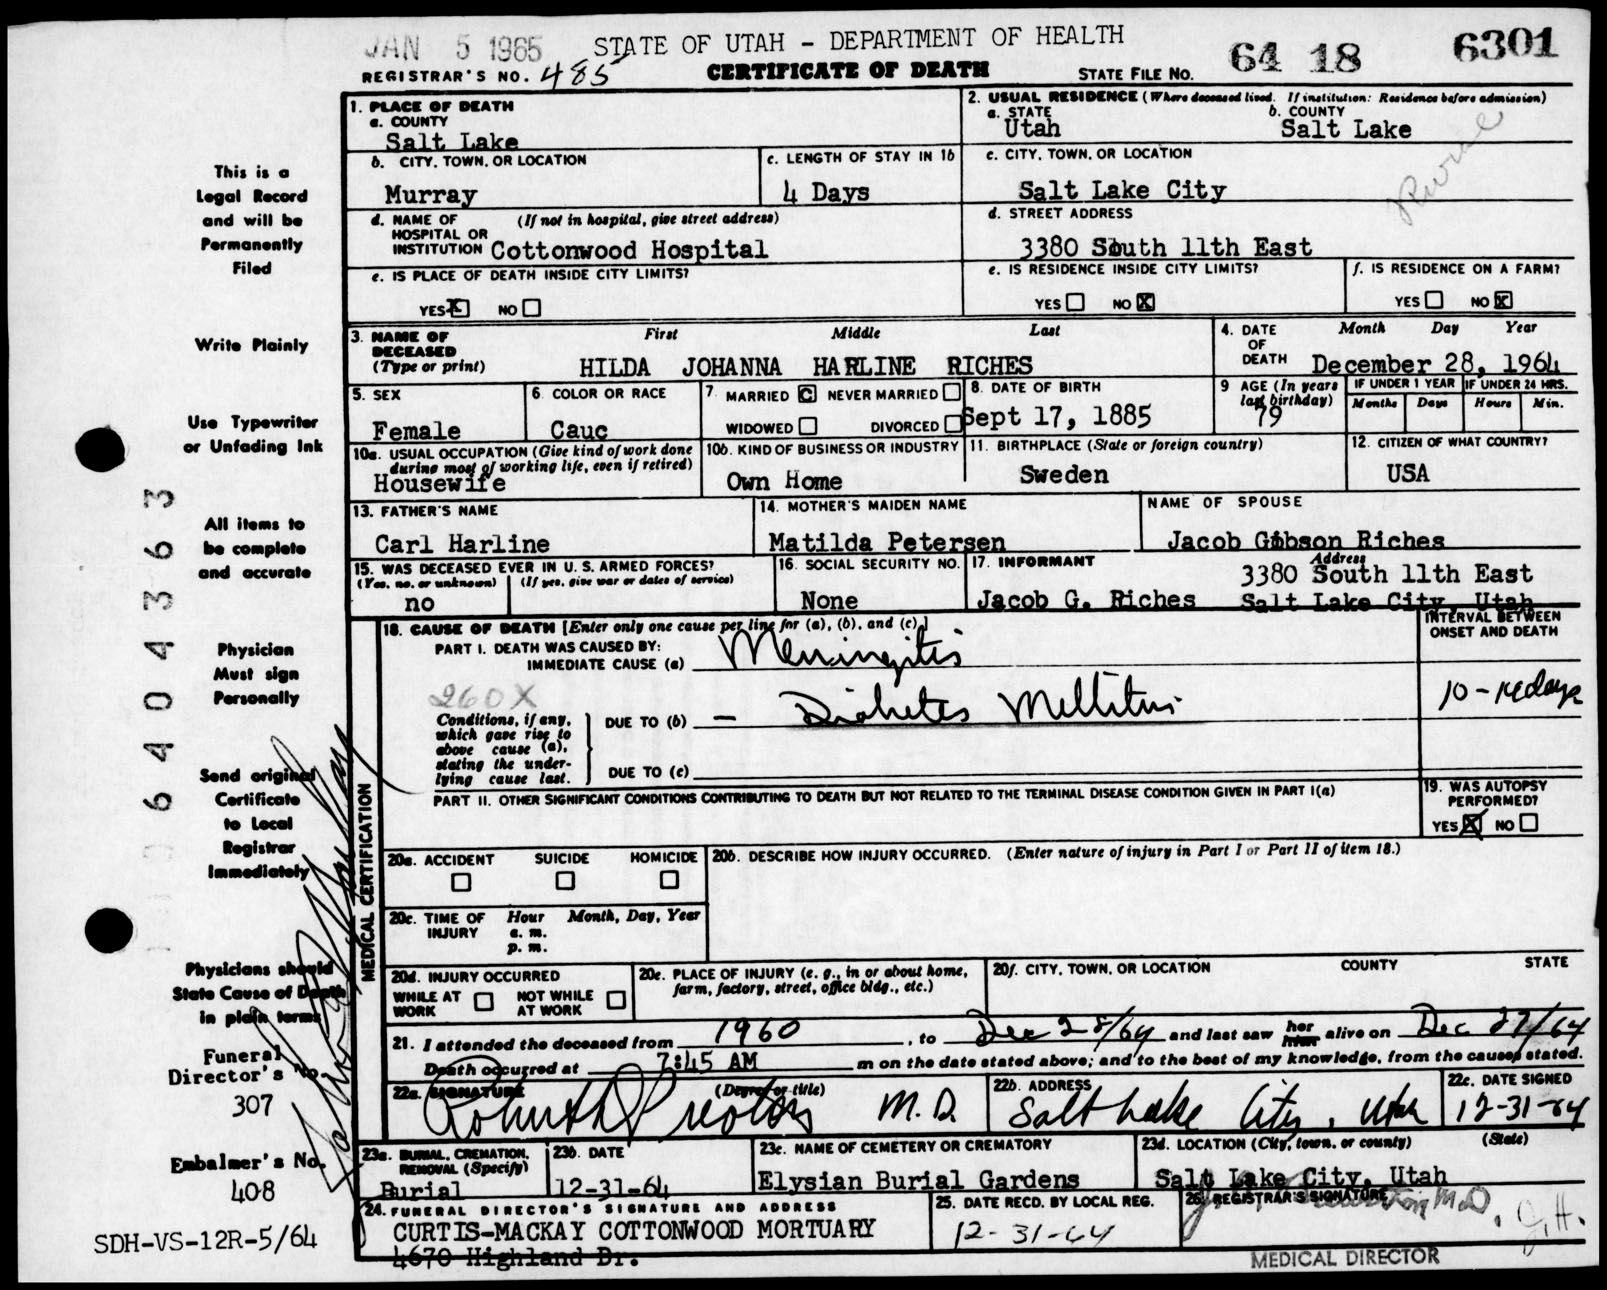 JAN 5 1965
STATE OF UTAH - DEPARTMENT OF HEALTH
64 18 6301
REGISTRAR'S NO. 485
CERTIFICATE OF DEATH
STATE FILE NO.
1. PLACE OF DEATH
a. COUNTY
Salt Lake
2. USUAL RESIDENCE (Where deceased lived. If institution: Residence before admission)
a. STATE
Utah
b. COUNTY
Salt Lake
b. CITY, TOWN, OR LOCATION
Murray
c. LENGTH OF STAY IN 1b
4 Days
c. CITY, TOWN, OR LOCATION
Salt Lake City
d. NAME OF HOSPITAL OR INSTITUTION (If not in hospital, give street address)
Cottonwood Hospital
d. STREET ADDRESS
3380 South 11th East
e. IS PLACE OF DEATH INSIDE CITY LIMITS?
YES X NO
e. IS RESIDENCE INSIDE CITY LIMITS?
YES NO X
f. IS RESIDENCE ON A FARM?
YES NO X
3. NAME OF DECEASED (Type or print)
First Middle Last
HILDA JOHANNA HARLINE RICHES
4. DATE OF DEATH
Month Day Year
December 28, 1964
5. SEX
Female
6. COLOR OR RACE
Cauc
7. MARRIED NEVER MARRIED
WIDOWED DIVORCED
8. DATE OF BIRTH
Sept 17, 1885
9 AGE (In years last birthday)
79
IF UNDER 1 YEAR
Months Days
IF UNDER 24 HRS.
Hours Min.
10a. USUAL OCCUPATION (Give kind of work done during most of working life, even if retired)
Housewife
10b. KIND OF BUSINESS OR INDUSTRY
Own Home
11. BIRTHPLACE (State or foreign country)
Sweden
12. CITIZEN OF WHAT COUNTRY?
USA
13. FATHER'S NAME
Carl Harline
14. MOTHER'S MAIDEN NAME
Matilda Petersen
NAME OF SPOUSE
Jacob Gibson Riches
15. WAS DECEASED EVER IN U.S. ARMED FORCES?
(Yes, no, or unknown) (If yes, give war or dates of service)
no
16. SOCIAL SECURITY NO.
None
17. INFORMANT Address
Jacob G. Riches
3380 South 11th East
Salt Lake City, Utah
18. CAUSE OF DEATH [Enter only one cause per line for (a), (b), and (c).]
INTERVAL BETWEEN ONSET AND DEATH
PART I. DEATH WAS CAUSED BY:
IMMEDIATE CAUSE (a) Meningitis
260X
10-14 days
Conditions, if any, which gave rise to above cause (a), stating the underlying cause last.
DUE TO (b) — Diabetes Mellitus
DUE TO (c)
PART II. OTHER SIGNIFICANT CONDITIONS CONTRIBUTING TO DEATH BUT NOT RELATED TO THE TERMINAL DISEASE CONDITION GIVEN IN PART I(a)
19. WAS AUTOPSY PERFORMED?
YES X NO
MEDICAL CERTIFICATION
20a. ACCIDENT SUICIDE HOMICIDE
20b. DESCRIBE HOW INJURY OCCURRED. (Enter nature of injury in Part I or Part II of item 18.)
20c. TIME OF INJURY
Hour Month, Day, Year
a. m.
p. m.
20d. INJURY OCCURRED
WHILE AT WORK NOT WHILE AT WORK
20e. PLACE OF INJURY (e. g., in or about home, farm, factory, street, office bldg., etc.)
20f. CITY, TOWN, OR LOCATION COUNTY STATE
21. I attended the deceased from 1960, to Dec 28/64 and last saw her him alive on Dec 27/64
Death occurred at 7:45 AM m on the date stated above; and to the best of my knowledge, from the causes stated.
22a. SIGNATURE (Degree or title)
M.D.
22b. ADDRESS
Salt Lake City, Utah
22c. DATE SIGNED
12-31-64
23a. BURIAL, CREMATION, REMOVAL (Specify)
Burial
23b. DATE
12-31-64
23c. NAME OF CEMETERY OR CREMATORY
Elysian Burial Gardens
23d. LOCATION (City, town, or county) (State)
Salt Lake City, Utah
24. FUNERAL DIRECTOR'S SIGNATURE AND ADDRESS
CURTIS-MACKAY COTTONWOOD MORTUARY
4670 Highland Dr.
25. DATE RECD. BY LOCAL REG.
12-31-64
26. REGISTRAR'S SIGNATURE
MEDICAL DIRECTOR
This is a
Legal Record
and will be
Permanently
Filed
Write Plainly
Use Typewriter
or Unfading Ink
All items to
be complete
and accurate
Physician
Must sign
Personally
Send original
Certificate
to Local
Registrar
Immediately
Physicians should
State Cause of Death
in plain terms
Funeral
Director's No.
307
Embalmer's No.
408
SDH-VS-12R-5/64
640404363